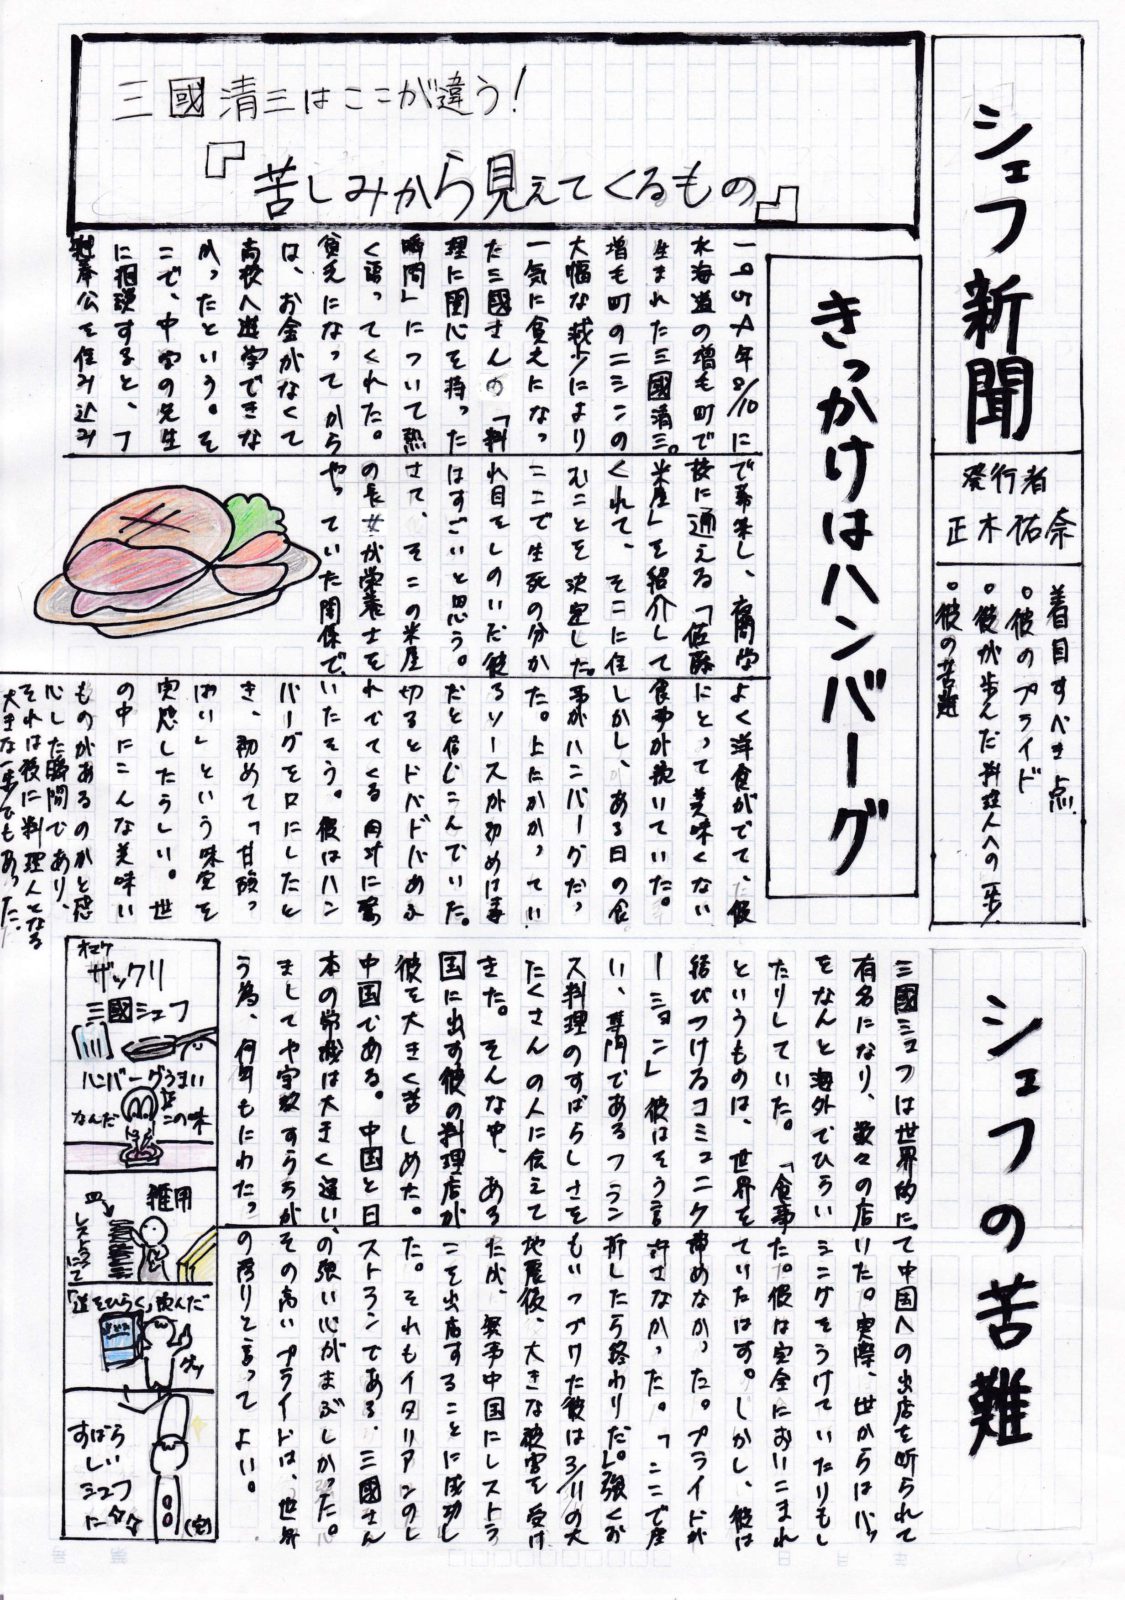 シェフ新聞
発行者
正木祐奈
着目すべき点
。彼のプライド
。彼が歩んだ料理人への一歩
。彼の苦難
三國清三はここが違う!
『苦しみから見えてくるもの』
きっかけはハンバーグ
一九五四年8/10に
北海道の増毛町で
生まれた三國清三。
増毛町のニシンの
大幅な減少により
一気に貧乏になっ
た三國さんの「料
理に関心を持った
瞬間」について熱
く語ってくれた。
貧乏になってから
は、お金がなくて
高校へ進学できな
かったという。そ
こで、中学の先生
に相談すると、
奉公を住み込み
で募集し、夜間学
校に通える「佐藤
米屋」を紹介して
くれて、そこに住
むことを決定した。
ここで生死の分か
れ目をしのいだ彼
はすごいと思う。
さて、そこの米屋
の長女が栄養士を
やっていた関係で、
よく洋食がでて、彼
にとって美味くない
食事が続いていた。
しかし、ある日の食
事がハンバーグだっ
た。上にかかってい
るソースが初めは毒
だと信じこんでいた。
切るとドバドバあふ
れでてくる肉汁に驚
いたそう。彼はハン
バーグを口にしたと
き、初めて「甘酸っ
ぱい」という味覚を
実感したらしい。世
の中にこんな美味い
ものがあるのかと感
心した瞬間であり、
それは後に料理人となる
大きな一歩でもあった。
シェフの苦難
三國シェフは世界的に
有名になり、数々の店
をなんと海外でひらい
たりしていた。「食事
というものは、世界を
結びつけるコミュニケ
ーション」彼はそう言
い、専門であるフラン
ス料理のすばらしさを
たくさんの人に伝えて
きた。そんな中、ある
国に出す彼の料理店が
彼を大きく苦しめた。
中国である。中国と日
本の常識は大きく違い、
ましてや
う為、何年もにわたっ
て中国への出店を断られて
いた。実際、世からはバッ
シングをうけていたりもし
た。彼は完全においこまれ
ていたはず。しかし、彼は
諦めなかった。プライドが
許さなかった。「ここで座
折したら終わりだ」。強くお
もいつづけた彼は3/11の大
地震後、大きな被害を受け
たが、無事中国にレストラ
ンを出店することに成功し
た。それもイタリアンのレ
ストランである。三國さん
の強い心がまぶしかった。
その高いプライドは、世界
の誇りと言ってよい。
オマケ
ザックリ
三國シェフ
ハンバーグうまい
なんだこの味
雑用
皿
レストランにて
「道をひらく」読んだ
グッ
すばら
しい
シェフ
に々々
(完)